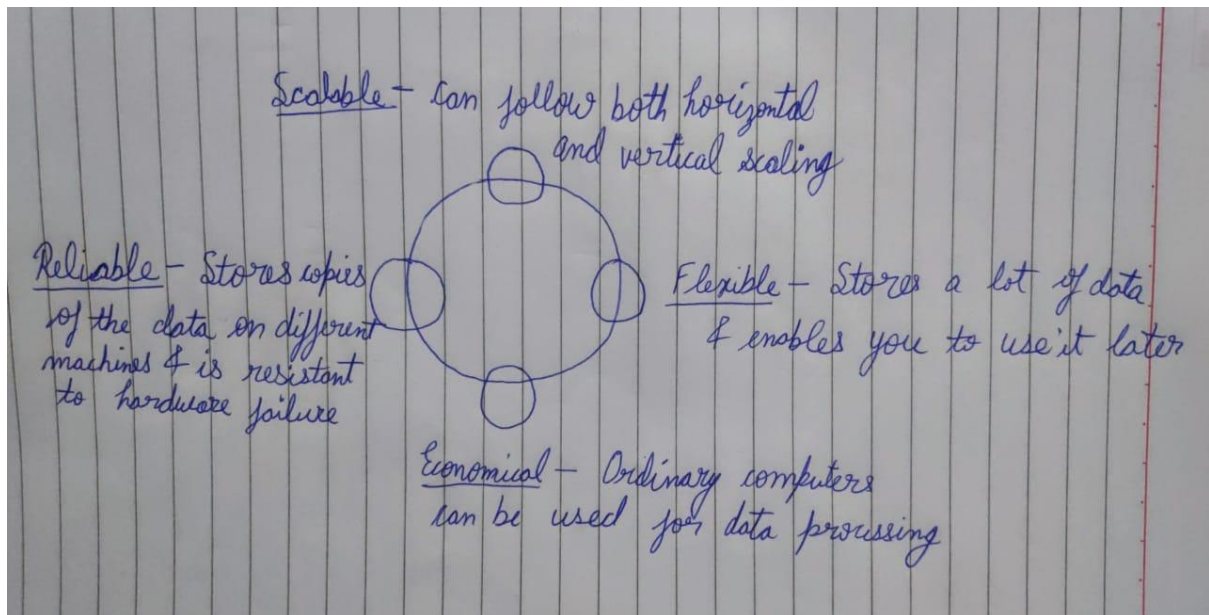 Scalable - Can follow both horizontal
and vertical scaling
Reliable - Stores copies
of the data on different
machines & is resistant
to hardware failure
Flexible - Stores a lot of data
& enables you to use it later
Economical - Ordinary computers
can be used for data processing